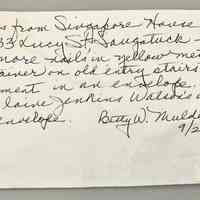 s from Singapore House
33 Lucy St. Saugatuck
more nails in yellow met
ainer on old entry stairs
ment in an envelope.
laine Jenkins Watson's
envelope. Betty W. Muld
9/2